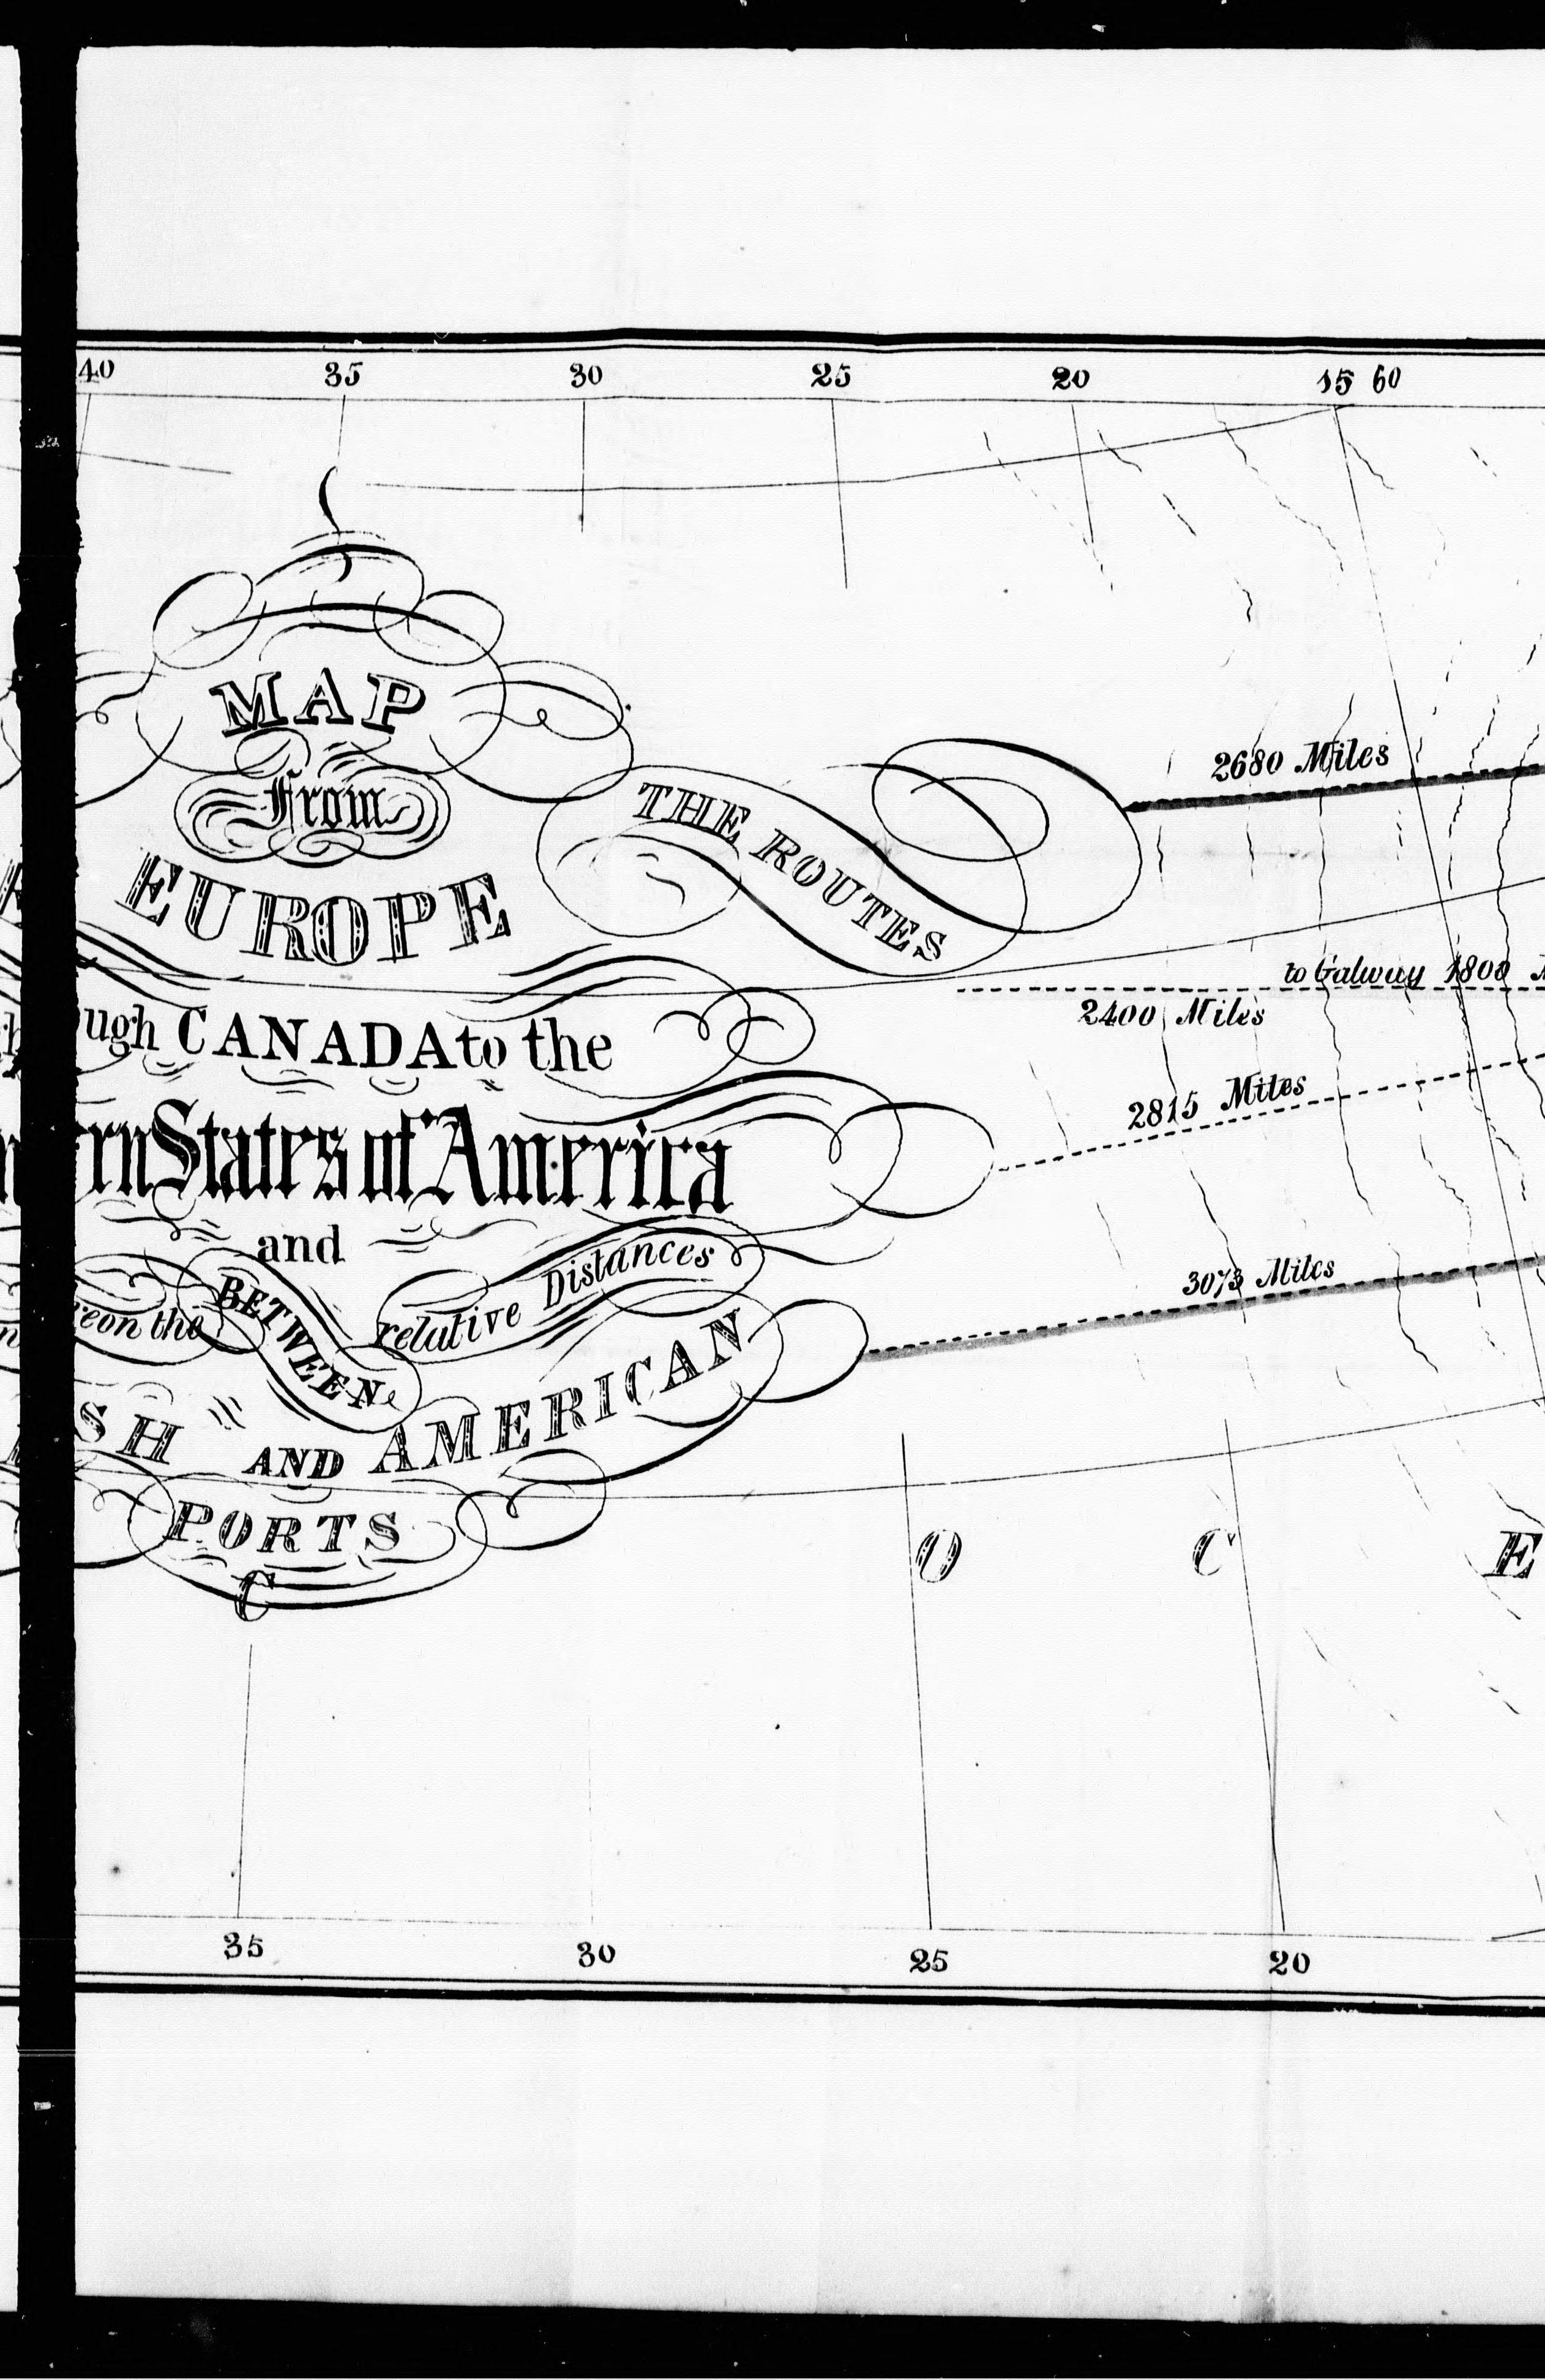 40 35 30 25 20 15 60
MAP
From
THE ROUTES
EUROPE
ugh CANADA to the
rn States of America
and
eon the BETWEEN relative Distances
SH AND AMERICAN
PORTS
C
2680 Miles
to Galway 1800 M
2400 Miles
2815 Miles
3073 Miles
O C E
35 30 25 20